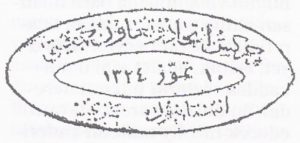 چركس اتحاد و تعاون جمعيتى
١٠ تموز ١٣٢٤